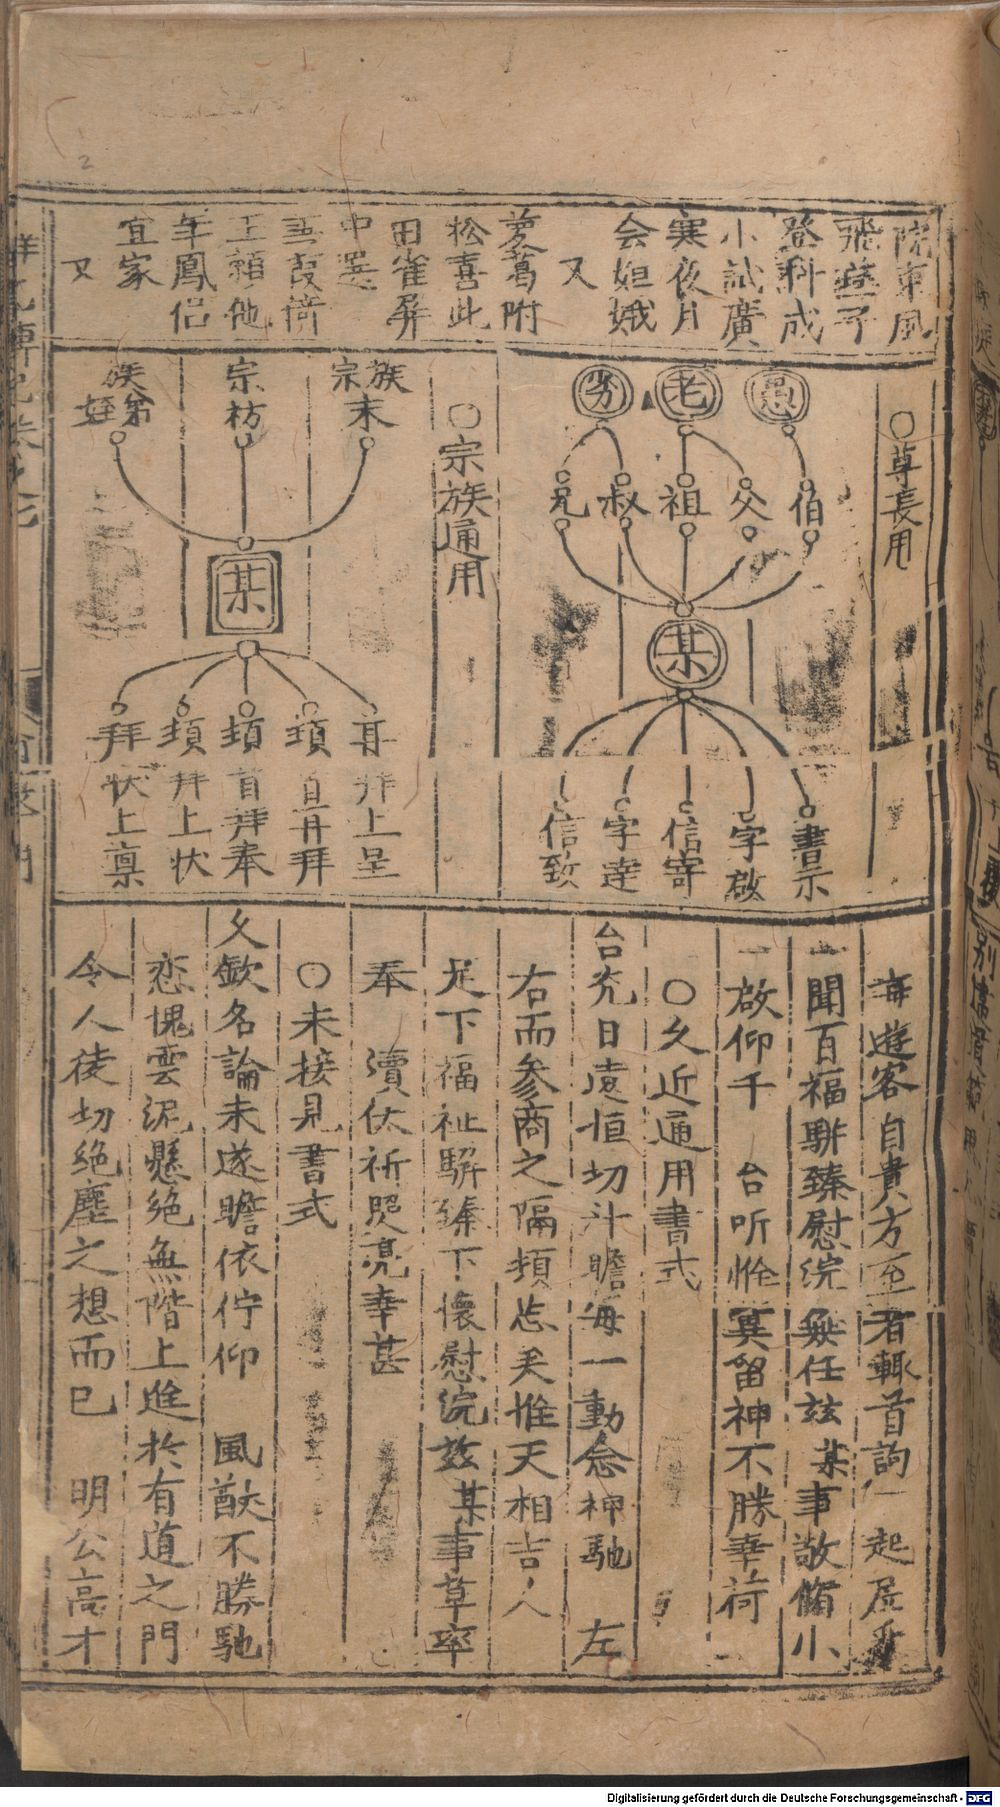 院東風
飛燕子
登科成
小試廣
寒夜月
会姮娥
又
蔦葛附
松喜此
田雀屏
中選
葭倚
玉賴他
年鳳侶
宜家
又
○尊長用
愚
老
劣
伯
父
祖
叔
兄
某
書示
字啟
信寄
字達
信致
○宗族通用
宗族末
宗枋
族弟姪
某
再拜上呈
頓首再拜
頓首拜奉
頓拜上状
拜状上禀
海遊客自貴方至者輒首詢 起居
聞百福駢臻慰浣無任兹某事敬脩小
啟仰千 台听惟冀留神不勝幸荷
○久近通用書式
台充日遠恒切斗瞻每一動念神馳 左
右而參商之隔頻忘美惟天相吉人
足下福祉駢臻下懷慰浣兹某事草率
奉 瀆伏祈炤亮幸甚
○未接見書式
久欽名論未遂瞻依佇仰 風猷不勝馳
恋愧雲泥懸絶無階上進於有道之門
令人徒切絶塵之想而已 明公高才
Digitalisierung gefördert durch die Deutsche Forschungsgemeinschaft - DFG